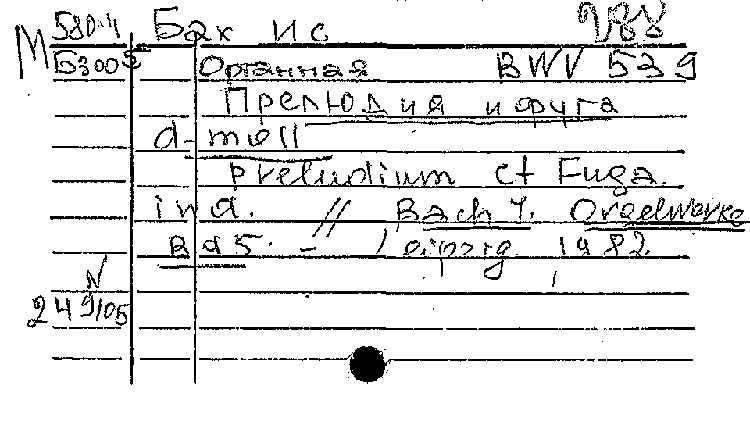 М 580.4 Бах И С 288
Б3005 Органная BWV 539
Прелюдия и фуга
d-moll
Preludium et Fuga
in d. // Bach J. Orgelwerke
Bd 5. - Leipzig 1982
N
249/05